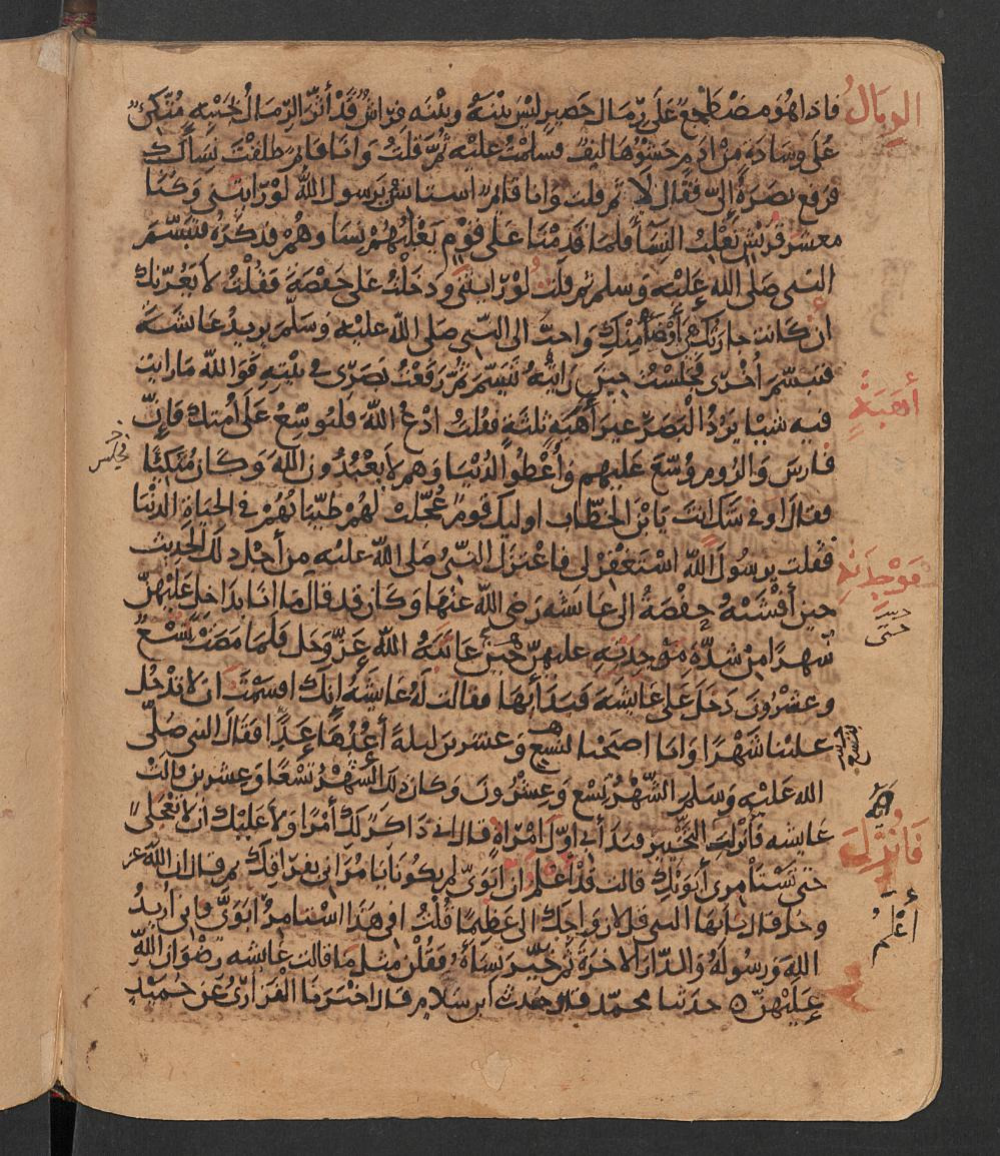 فاذا هو مضطجع على رمال حصير ليس بينه وبينه فراش قد أثر الرمال بجنبه متكئ
على وسادة من ادم حشوها ليف فسلمت عليه ثم قلت وانا قايم طلقت نساك
فرفع بصره إلى فقال لا ثم قلت وانا قايم استانس يرسول الله لو رايتني وكنا
معشر قريش نغلب النسا فلما قدمنا على قوم يغلبهم نسا وهم فذكره فتبسم
النبي صلى الله عليه وسلم ثم قلت لو رايتني ودخلت على حفصة فقلت لا يغرنك
ان كانت جارتك هي أوضأ منك واحب الى النبي صلى الله عليه وسلم يريد عائشة
فتبسم أخرى فجلست حين رايته تبسم ثم رفعت بصري في بيته فوالله ما رايت
فيه شيا يرد البصر غير أهبة ثلثة فقلت ادع الله فليوسع على أمتك فإن
فارس والروم وسع عليهم وأعطوا الدنيا وهم لا يعبدون الله وكان متكئا
فقال اوفي شك انت يا بن الخطاب اوليك قوم عجلت لهم طيباتهم في الحياة الدنيا
فقلت يرسول الله استغفر لي فاعتزل النبي صلى الله عليه من أجل ذلك الحديث
حين أفشته حفصة الى عائشة رضي الله عنها وكان قد قال ما انا بداخل عليهن
شهرا من شدة موجدته عليهن حين عاتبه الله عز وجل فلما مضت تسع
وعشرون دخل على عايشة فبدأ بها فقالت له عايشة إنك اقسمت ان لا تدخل
علينا شهرا وانا اصبحنا لتسع وعشرين ليلة أعدها عدا فقال النبي صلى
الله عليه وسلم الشهر تسع وعشرون وكان ذلك الشهر تسعا وعشرين قالت
عايشه فأنزلت التخيير فبدأ بي اول امراة قال اني ذاكر لك أمرا ولا عليك ان لا تعجلي
حتى تستامري أبويك قالت قد اعلم ان ابوي لم يكونا يامراني بفراقك ثم قال ان الله عز
وجل قال يا أيها النبي قل لازواجك الى عظيما قلت افي هذا استامر ابوي فاني اريد
الله ورسوله والدار الاخرة ثم خير نساه فقلن مثل ما قالت عايشه رضوان الله
عليهن ه حدثنا محمد هو ابن سلام قال اخبرنا الفزاري عن حميد
الرمال
أهبة
فجلس
موجدته
حتى
بتسع
فأنزل
أعلم